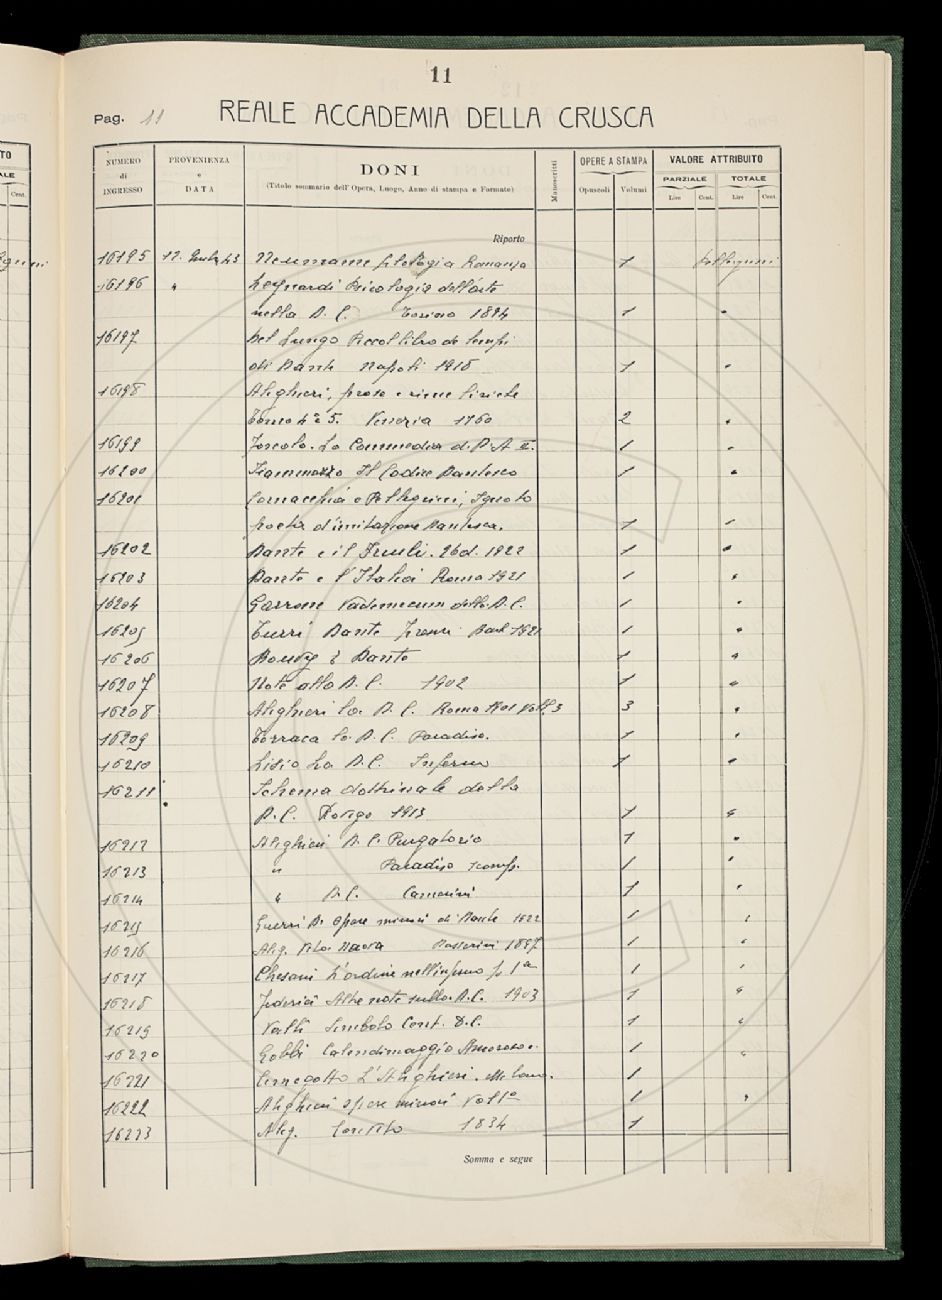 11
Pag. 11 REALE ACCADEMIA DELLA CRUSCA
NUMERO di INGRESSO PROVENIENZA e DATA DONI (Titolo sommario dell'Opera, Luogo, Anno di stampa e Formato) Manoscritti OPERE A STAMPA Opuscoli Volumi VALORE ATTRIBUITO PARZIALE Lire Cent. TOTALE Lire Cent.
Riporto
16195 12 43 Neumann filologia Romanza 1 Pellegrini
16196 " Leynardi Psicologia dell'arte
nella D. C. Torino 1894 1 "
16197 Del Lungo Piccol libro
di Dante Napoli 1918 1 "
16198 Alighieri, prose e rime liriche
Tomo 4° e 5. Venezia 1760 2 "
16199 Foscolo. La Commedia di D. A II. 1 "
16200 Fiammazzo Il Codice Dantesco 1 "
16201 Cornacchia e Pellegrini, Ignoto
poeta d'imitazione Dantesca. 1 "
16202 Dante e il Friuli. 1922 1 "
16203 Dante e l'Italia Roma 1921 1 "
16204 Garrone Vademecum della D. C. 1 "
16205 Turri Dante Firenze Barb 1921 1 "
16206 Dante 1 "
16207 Note alla D. C. 1902 1 "
16208 Alighieri La D. C. Roma Voll. 3 3 "
16209 Torraca La D. C. Paradiso. 1 "
16210 Lisio La D. C. Inferno 1 "
16211 Schema dottrinale della
D. C. 1913 1 "
16212 Alighieri D. C. Purgatorio 1 "
16213 " Paradiso scomp. 1 "
16214 " D. C. Camerini 1 "
16215 Guerri D. Opere minori di Dante 1922 1 "
16216 Alig. Vita Nuova Passerini 1897 1 "
16217 L'ordine nell'inferno p 1a 1 "
16218 Federici Altre note sulla D. C. 1903 1 "
16219 Valli Simbolo Cent. D. C. 1 "
16220 Gobbi Calendimaggio Amoroso. 1 "
16221 L'Alighieri. Milano. 1
16222 Alighieri Opere minori Vol 1° 1 "
16223 Alig. 1834 1
Somma e segue